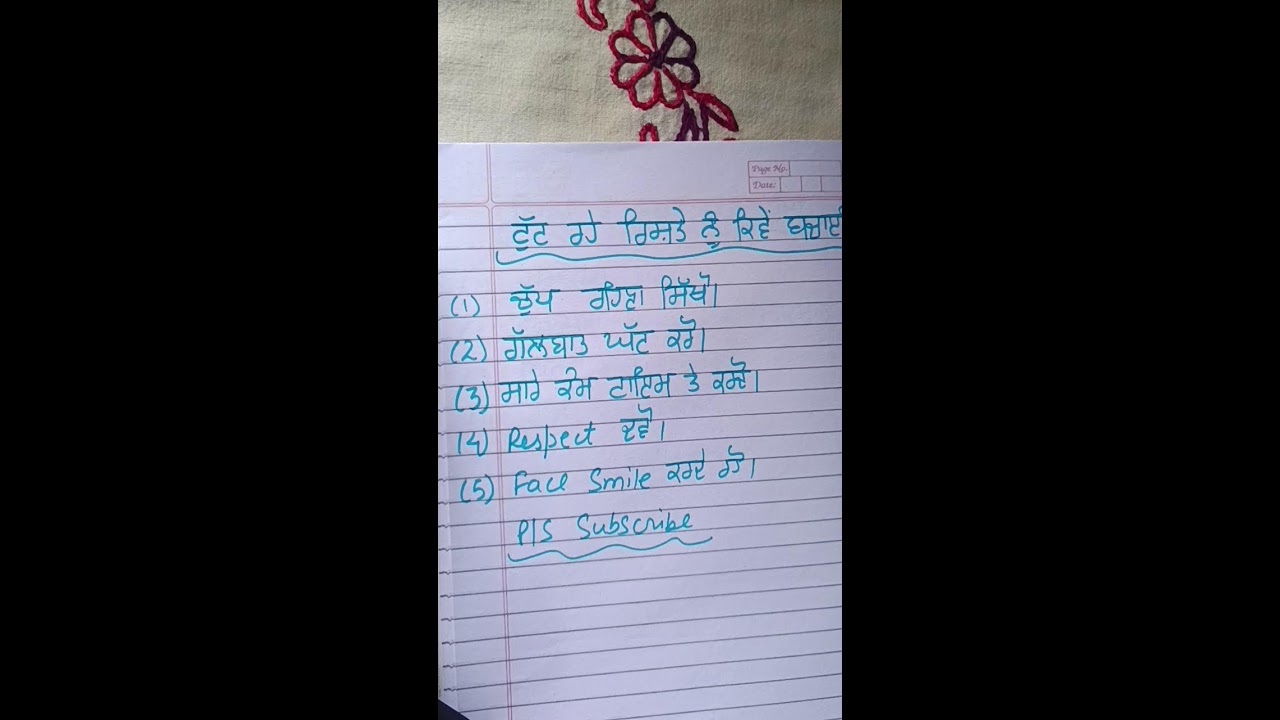 Page No.
Date:
ਟੁੱਟ ਰਹੇ ਰਿਸ਼ਤੇ ਨੂੰ ਕਿਵੇਂ ਬਚਾਈ
(1) ਚੁੱਪ ਰਹਿਣਾ ਸਿੱਖੋ।
(2) ਗੱਲਬਾਤ ਘੱਟ ਕਰੋ।
(3) ਸਾਰੇ ਕੰਮ ਟਾਇਮ ਤੇ ਕਰੋ।
(4) Respect ਦਵੋ।
(5) Face Smile ਕਰਦੇ ਰਹੋ।
Pls Subscribe